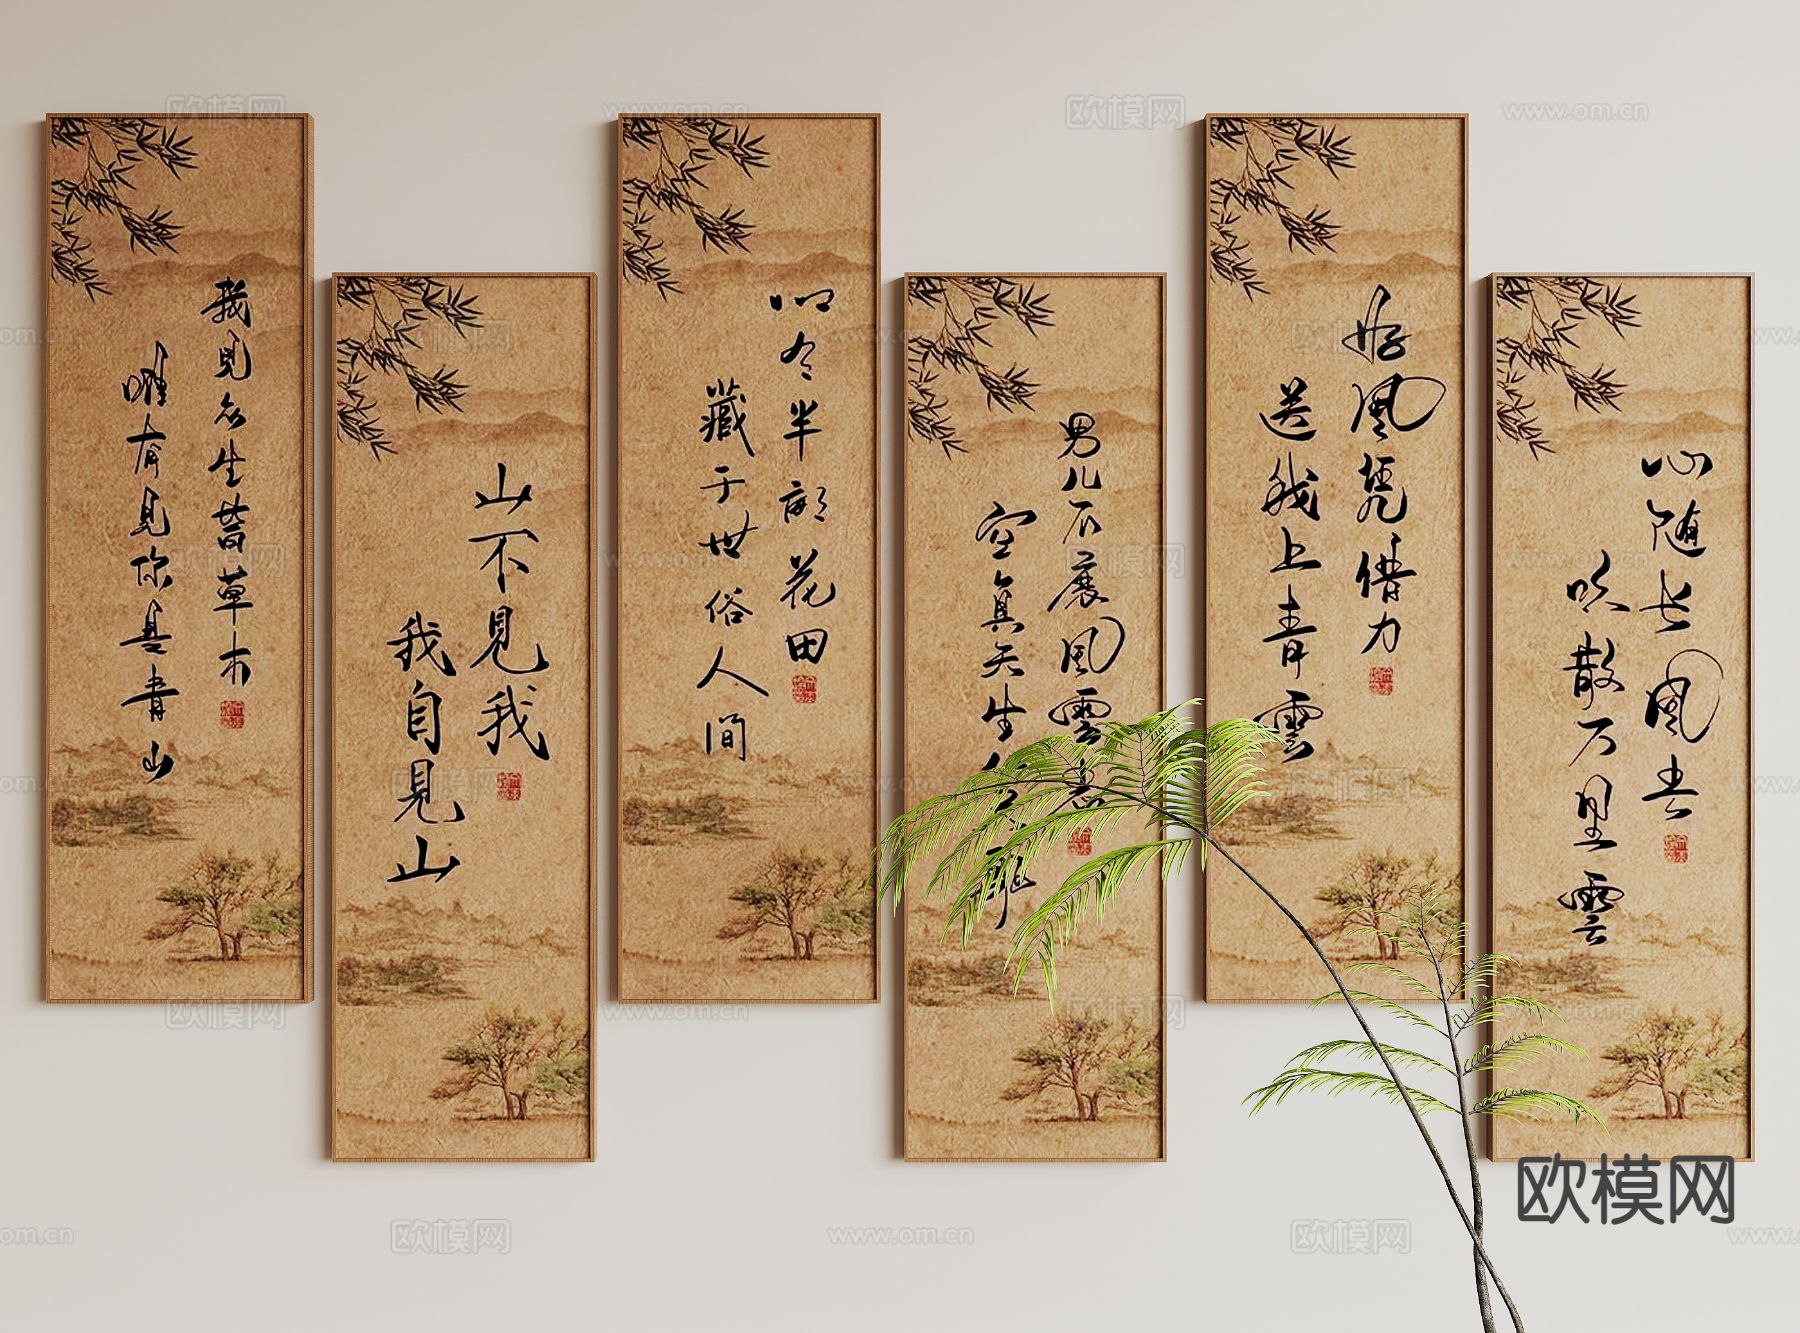 我見众生皆草木
唯有見你是青山
山不見我
我自見山
心令半畝花田
藏于世俗人间
男儿不展風雲志
空負天生
好風凭借力
送我上青雲
心随长風去
吹散万里雲
欧模网
www.om.cn